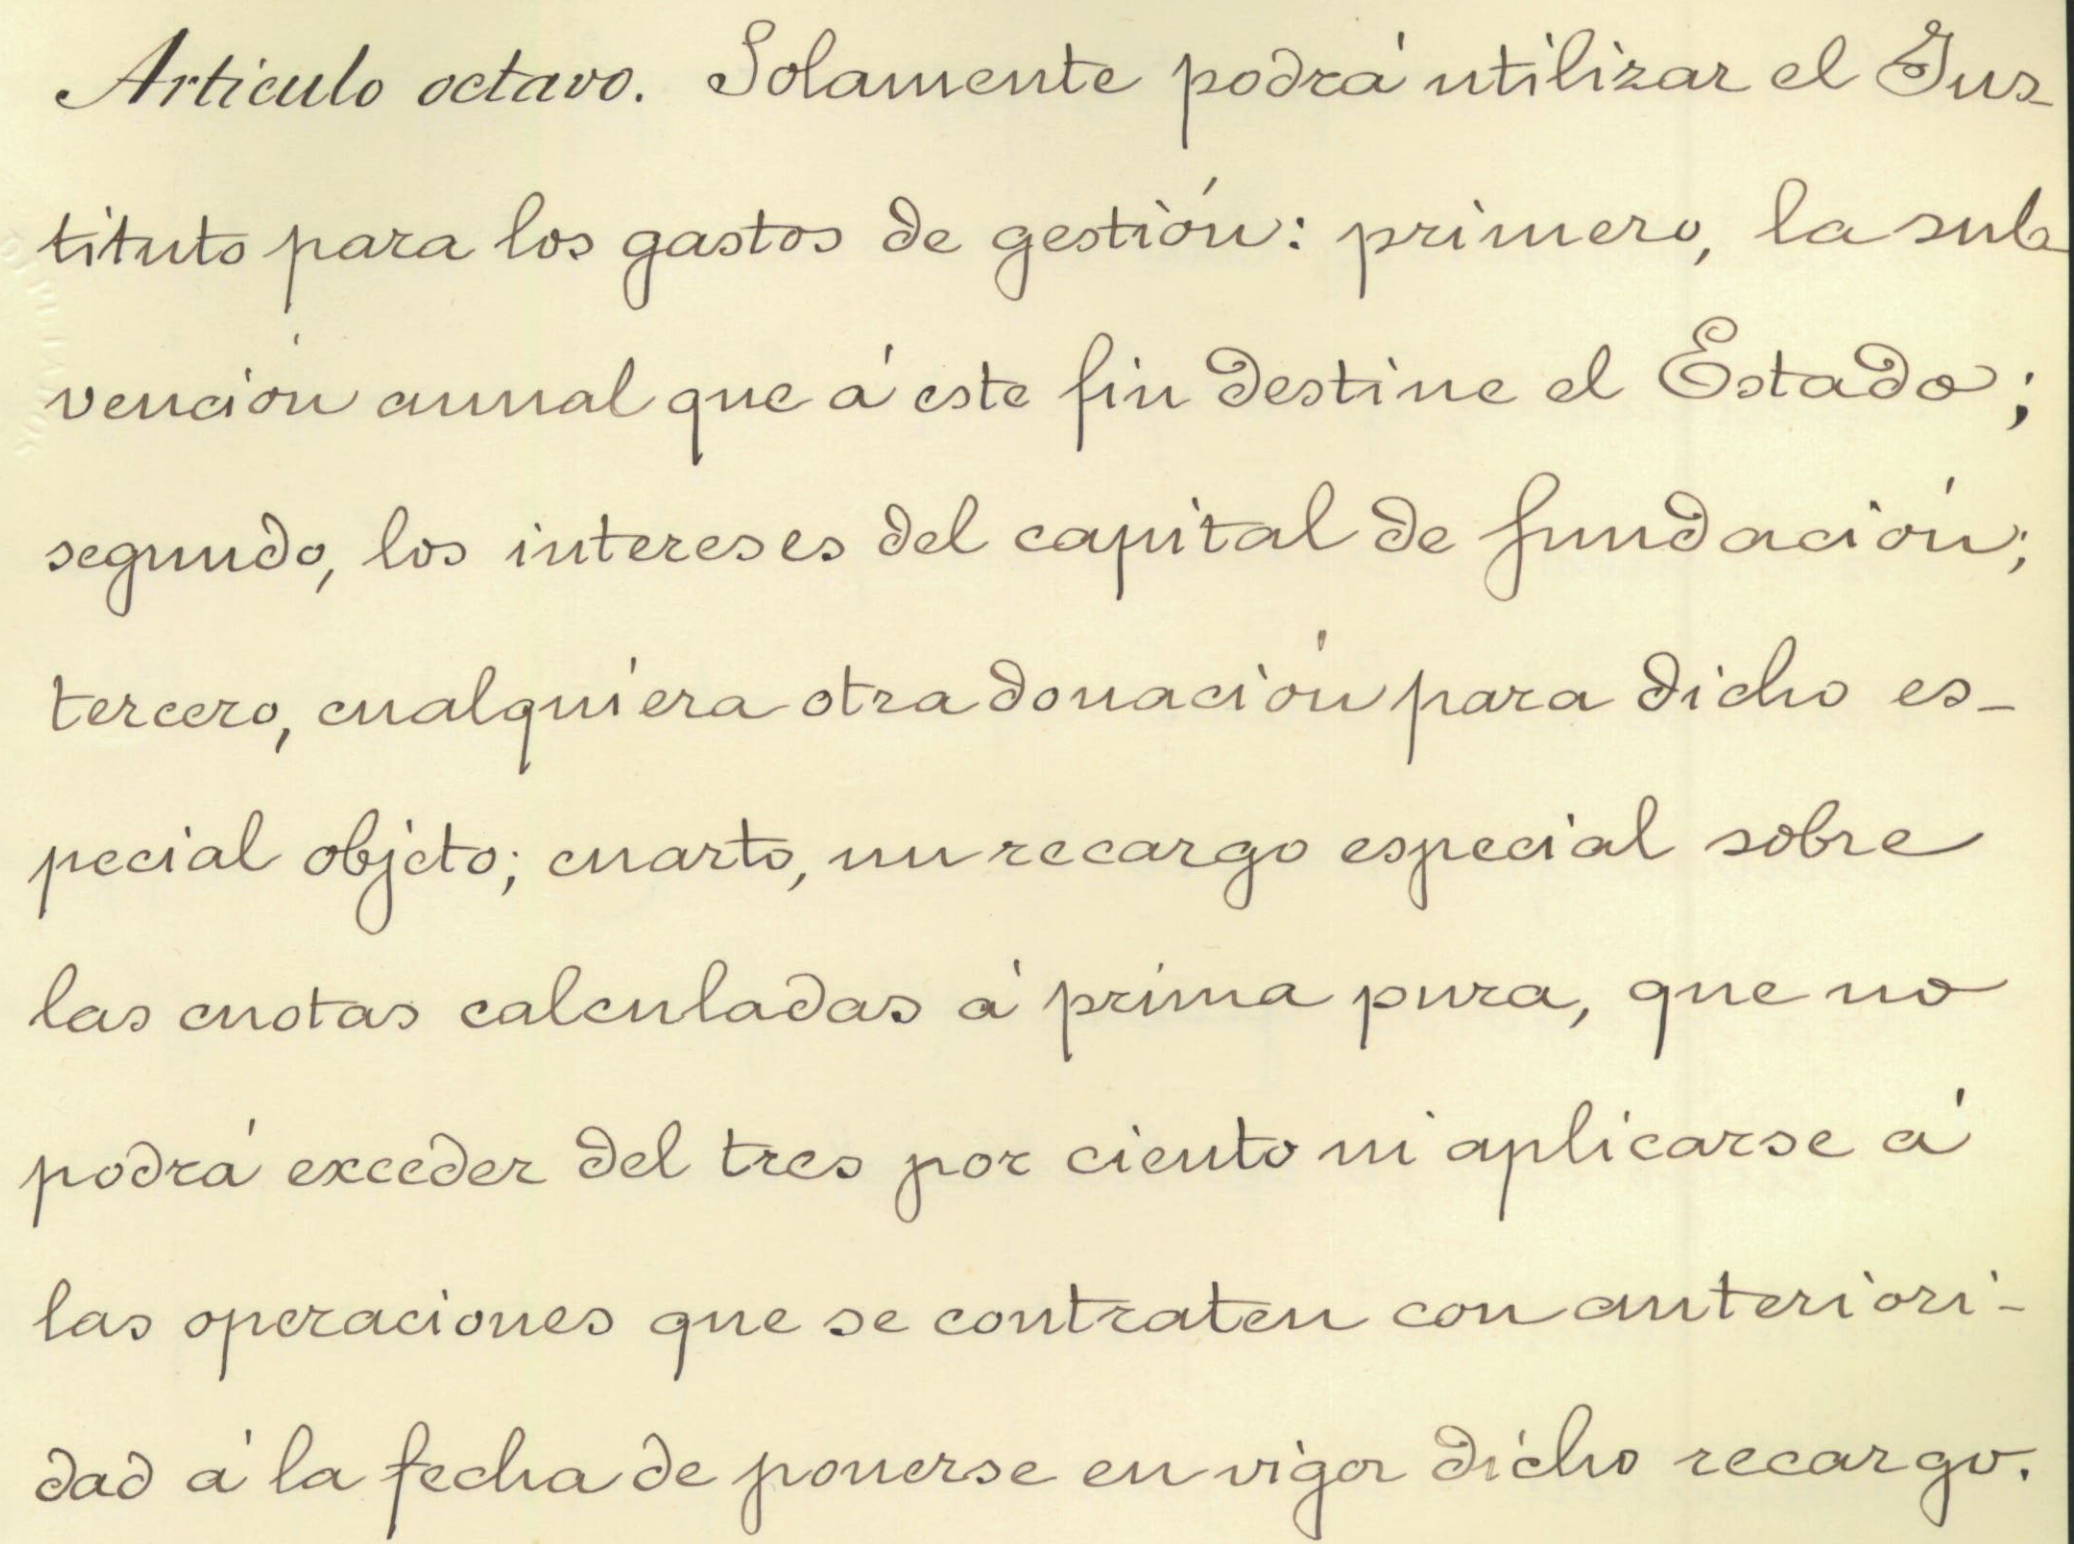 Articulo octavo. Solamente podrá utilizar el Ins-
tituto para los gastos de gestión: primero, la sub-
vención annal que á este fin destine el Estado;
segundo, los intereses del capital de fundación;
tercero, cualquiera otra donación para dicho es-
pecial objeto; cuarto, un recargo especial sobre
las cuotas calculadas á prima pura, que no
podrá exceder del tres por ciento ni aplicarse á
las operaciones que se contraten con anteriori-
dad á la fecha de ponerse en vigor dicho recargo.